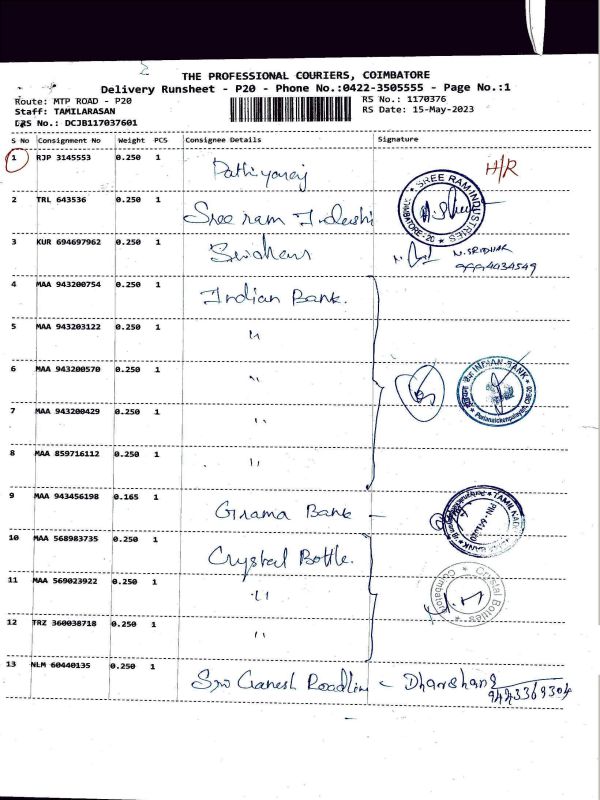 THE PROFESSIONAL COURIERS, COIMBATORE
Delivery Runsheet - P20 - Phone No.:0422-3505555 - Page No.:1
Route: MTP ROAD - P20
RS No.: 1170376
Staff: TAMILARASAN
RS Date: 15-May-2023
DRS No.: DCJB117037601
S No Consignment No Weight PCS Consignee Details Signature
1 RJP 3145553 0.250 1 Pathiyaraj H/R
2 TRL 643536 0.250 1 Sree ram SREE RAM INDUSTRIES
3 KUR 694697962 0.250 1 N. SRIDHAR
9994034549
4 MAA 943200754 0.250 1 Indian Bank.
5 MAA 943203122 0.250 1 "
6 MAA 943200570 0.250 1 " INDIAN BANK
7 MAA 943200429 0.250 1 "
8 MAA 859716112 0.250 1 "
9 MAA 943456198 0.165 1 Grama Bank - TAMIL NADU
10 MAA 568983735 0.250 1 Crystal Bottle.
11 MAA 569023922 0.250 1 " Crystal Bottles Coimbatore
12 TRZ 360038718 0.250 1 "
13 NLM 60440135 0.250 1 Sri Ganesh Roadline - Dharshana
9443369304